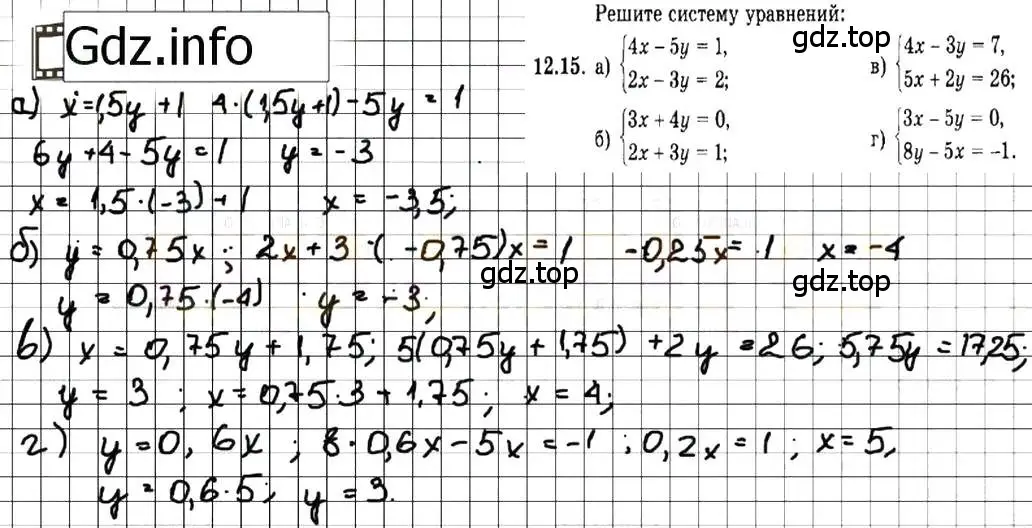 Gdz.info
Решите систему уравнений:
gdz.top
12.15. а) {4x − 5y = 1,
2x − 3y = 2;
в) {4x − 3y = 7,
5x + 2y = 26;
б) {3x + 4y = 0,
2x + 3y = 1;
г) {3x − 5y = 0,
8y − 5x = −1.
а) x = 1,5y + 1 4·(1,5y+1) − 5y = 1
6y + 4 − 5y = 1 y = −3
x = 1,5·(−3) + 1 x = −3,5;
б) y = 0,75x; 2x + 3·(−0,75)x = 1 −0,25x = 1 x = −4
gdz.top
gdz.top
y = 0,75·(−4) y = −3;
в) x = 0,75y + 1,75; 5(0,75y + 1,75) + 2y = 26; 5,75y = 17,25;
y = 3; x = 0,75·3 + 1,75; x = 4;
г) y = 0,6x; 8·0,6x − 5x = −1; 0,2x = 1; x = 5,
y = 0,6·5; y = 3.